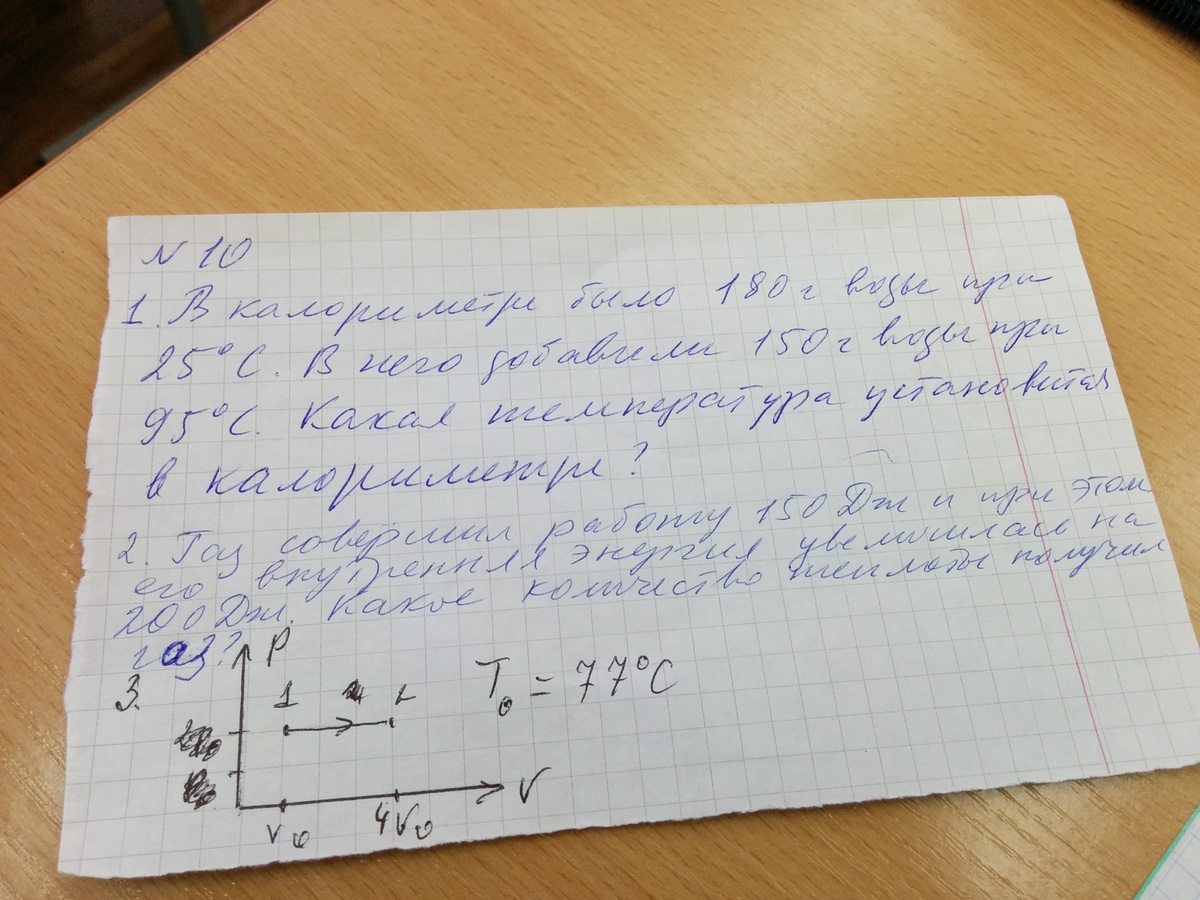 N 10
1. В калориметре было 180 г воды при
25°C. В него добавили 150 г воды при
95°C. Какая температура установится
в калориметре?
2. Газ совершил работу 150 Дж и при этом
его внутренняя энергия увеличилась на
200 Дж. Какое количество теплоты получил
газ?
3.
P
1 2
T₀ = 77°C
V₀ 4V₀ V